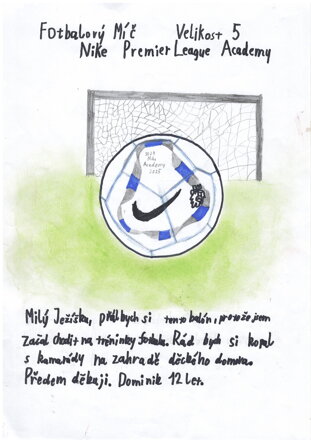 Fotbalový Míč Velikost 5
Nike Premier League Academy
2024
Nike
Academy
2025
Milý Ježíšku, přál bych si tento balón, protože jsem
začal chodit na tréninky fotbalu. Rád bych si kopal
s kamarády na zahradě děckého domova.
Předem děkuji. Dominik 12 let.